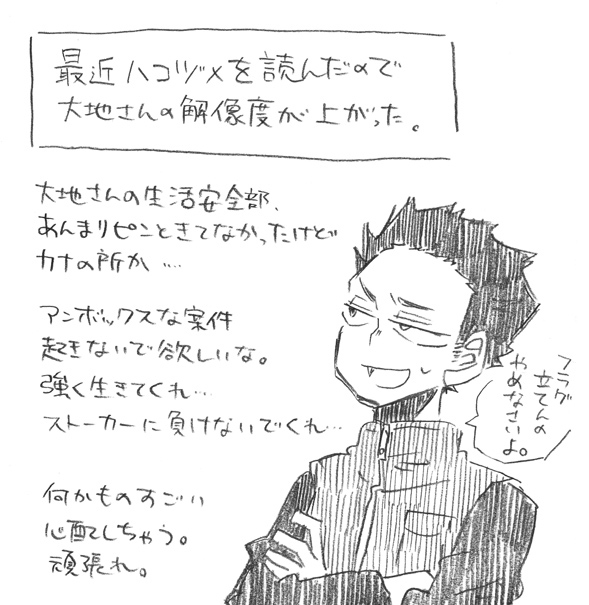 最近ハコヅメを読んだので
大地さんの解像度が上がった。
大地さんの生活安全部、
あんまりピンときてなかったけど
カナの所か…
アンボックスな案件
起きないで欲しいな。
強く生きてくれ…
ストーカーに負けないでくれ…
何かものすごい
心配しちゃう。
頑張れ。
フラグ
立てんの
やめなさいよ。